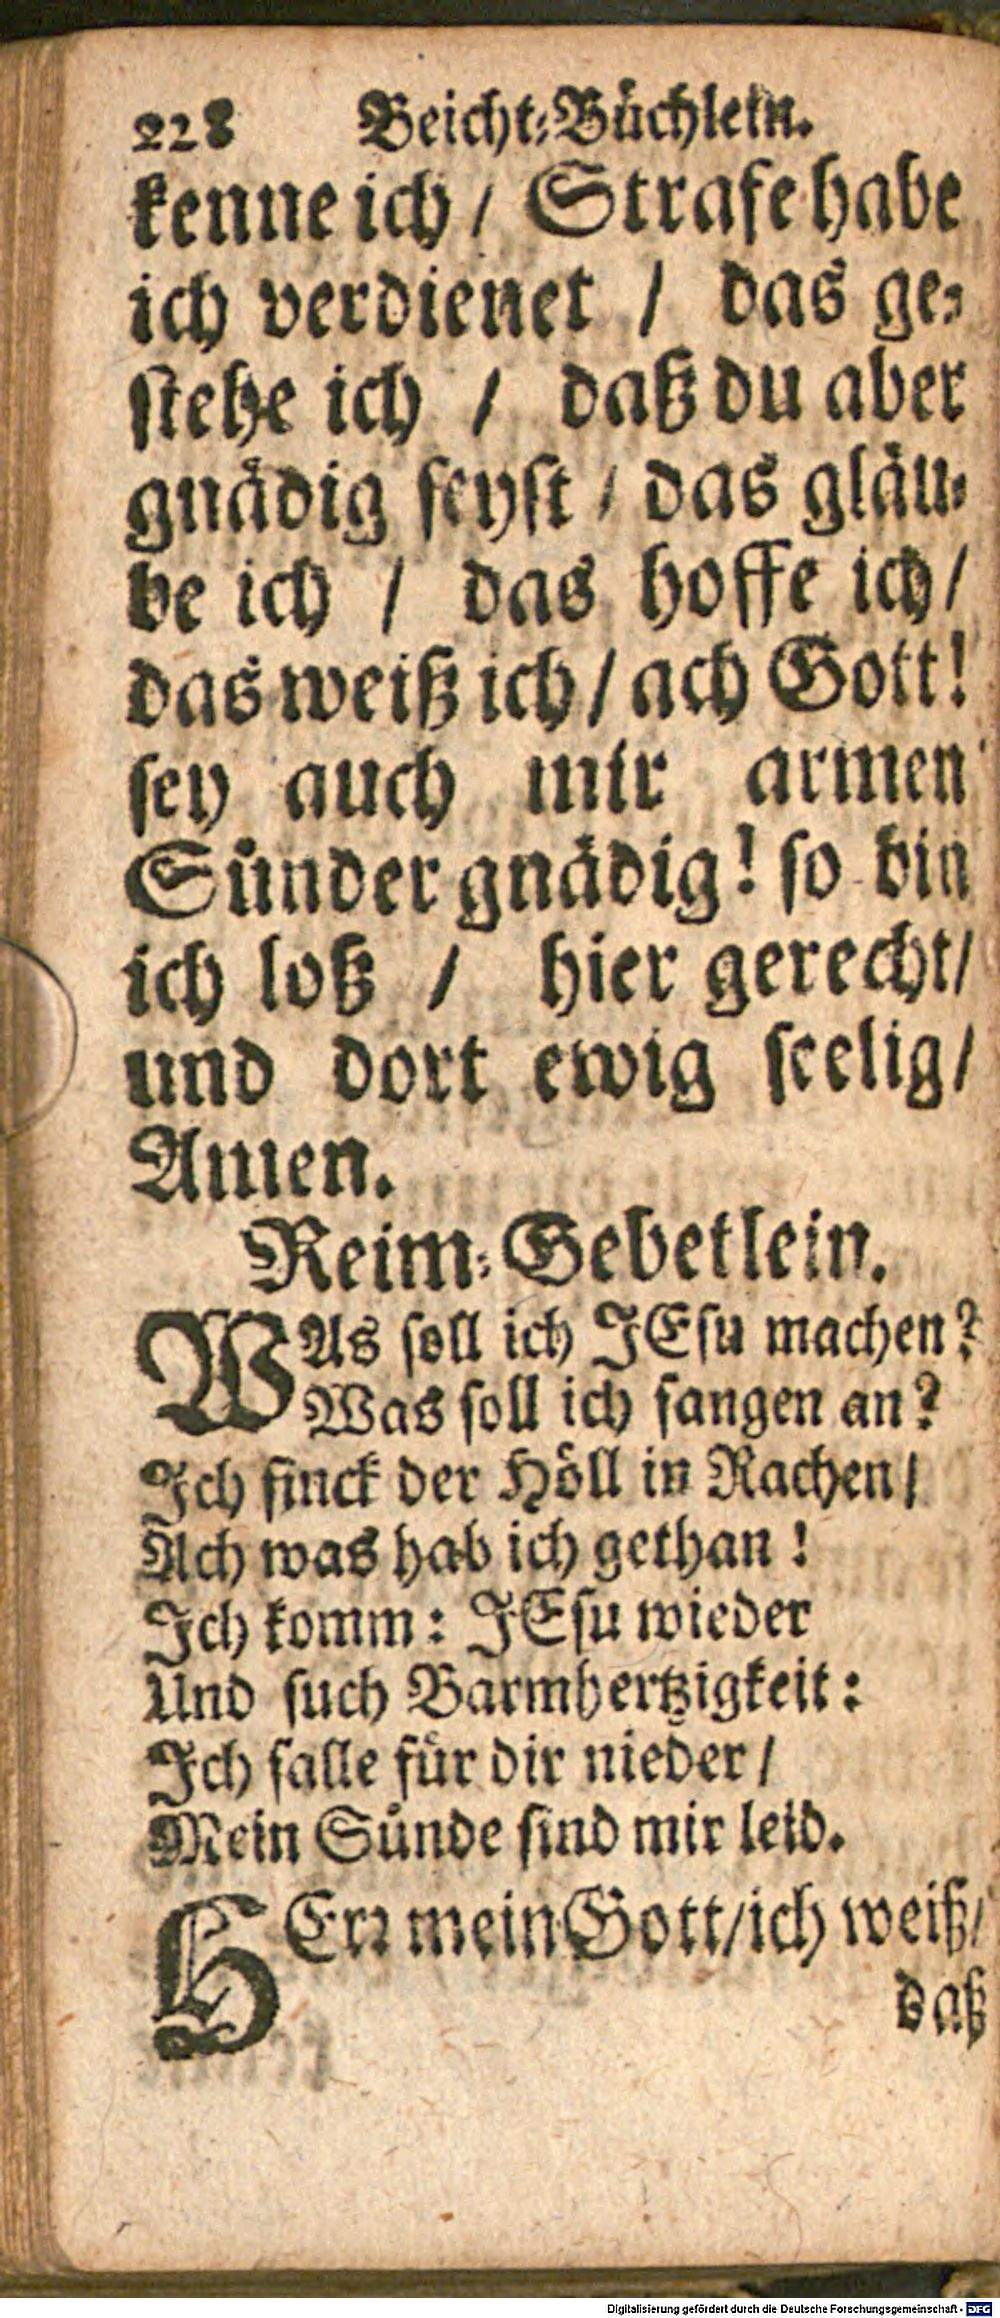 228 Beicht-Büchlein.
kenne ich / Strafe habe
ich verdienet / das ge-
stehe ich / daß du aber
gnädig seyst / das gläu-
be ich / das hoffe ich /
das weiß ich / ach Gott!
sey auch mir armen
Sünder gnädig! so bin
ich loß / hier gerecht /
und dort ewig seelig /
Amen.
Reim-Gebetlein.
WAs soll ich JEsu machen?
Was soll ich fangen an?
Ich sinck der Höll in Rachen /
Ach was hab ich gethan!
Ich komm: JEsu wieder
Und such Barmhertzigkeit:
Ich falle für dir nieder /
Mein Sünde sind mir leid.
HErr mein Gott / ich weiß /
daß
Digitalisierung gefördert durch die Deutsche Forschungsgemeinschaft - DFG